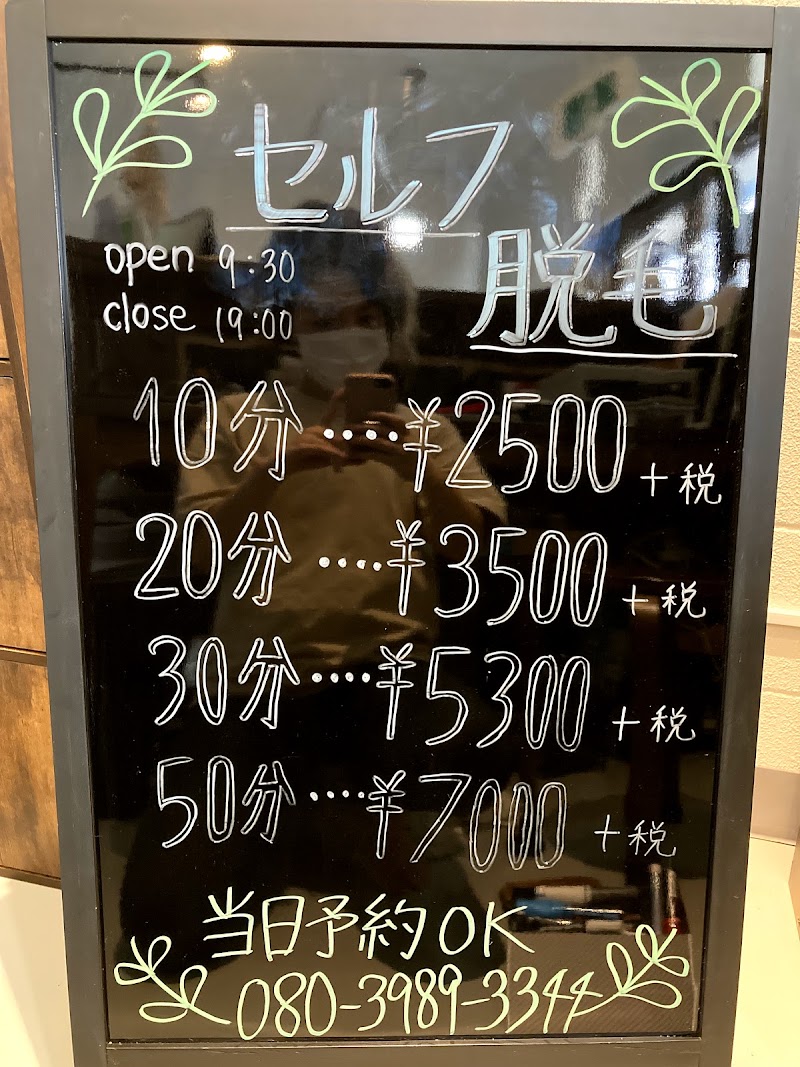 セルフ
脱毛
open 9:30
close 19:00
10分····¥2500+税
20分····¥3500+税
30分····¥5300+税
50分····¥7000+税
当日予約OK
080-3989-3344